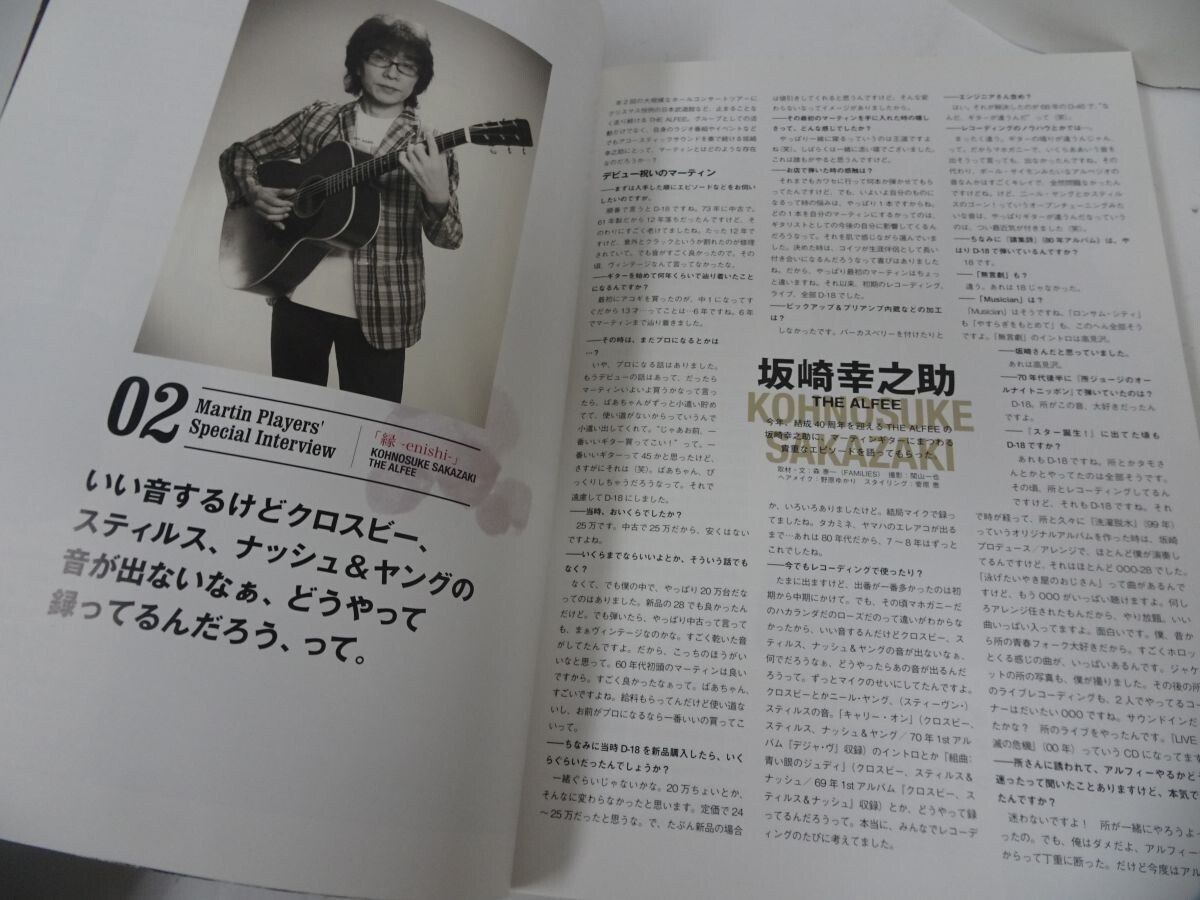 02
Martin Players'
Special Interview
「縁 -enishi-」
KOHNOSUKE SAKAZAKI
THE ALFEE
いい音するけどクロスビー、
スティルス、ナッシュ＆ヤングの
音が出ないなぁ、どうやって
録ってるんだろう、って。
第2回の大規模なホールコンサートツアーに
クリスマス恒例の日本武道館など、止まることな
く走り続けるTHE ALFEE。グループとしての活
動だけでなく、自身のラジオ番組やイベントなど
でもアコースティックサウンドを奏で続ける坂崎
幸之助にとって、マーティンとはどのような存在
なのだろうか…？
デビュー祝いのマーティン
──まずは入手した順にエピソードなどをお伺い
したいのですが。
順番で言うとD-18ですね。73年に中古で。
61年製だから12年落ちだったんですけど、そ
のわりにすごく老けてましたね。たった12年で
すけど、意外とクラックというか割れたのが修理
されていて。でも音がすごく良かったので。その
頃、ヴィンテージなんて言ってなかったな。
──ギターを始めて何年くらいで辿り着いたこと
になるんですか？
最初にアコギを買ったのが、中1になってす
ぐだから13才…ってことは…6年ですね。6年
でマーティンまで辿り着きました。
──その時は、まだプロになるとかは
…？
いや、プロになる話はありました。
もうデビューの話はあって、だったら
マーティンいよいよ買うかなって言っ
たら、ばあちゃんがずっと小遣い貯めて
て、使い道がないからっていうんで
小遣い出してくれて。「じゃあお前、一
番いいギター買ってこい！」って。一
番いいギターって45かと思ったけど、
さすがにそれは（笑）。ばあちゃん、び
っくりしちゃうだろうなって。それで
遠慮してD-18にしました。
──当時、おいくらでしたか？
25万です。中古で25万だから、安くはない
ですよね。
──いくらまでならいいよとか、そういう話でも
なく？
なくて、でも僕の中で、やっぱり20万台な
ってのはありました。新品の28でも良かったん
だけど。でも弾いたら、やっぱ中古って言って
も、まぁヴィンテージなのかな。すごく乾いた音
がしてたんですよ。だから、こっちのほうがい
いなと思って。60年代初頭のマーティンは良い
ですから。すごく良かったなぁって。ばあちゃん、
すごいですよね。給料もらってんだけど使い道な
いし、お前がプロになるなら一番いいの買ってこ
いって。
──ちなみに当時D-18を新品購入したら、いく
らぐらいだったんでしょうか？
一緒ぐらいじゃないかな。20万ちょいとか、
そんなに変わらなかったと思います。定価で24
〜25万だったと思うな。で、たぶん新品の場合
は値引きしてくれると思うんですけど。そんな変
わらないなってイメージがありましたから。
──その最初のマーティンを手に入れた時の嬉し
さって、どんな感じでしたか？
やっぱり一緒に寝るっていうのは王道ですよ
ね（笑）。しばらくは一緒に添い寝でございました。
これは誰もがやると思うんですけど。
──お店で弾いた時の感触は？
それまでもカワセに行って何本か弾かせてもら
ってたんですけど、でも、いよいよ自分のものに
なるって時の悩みは、やっぱり1本ですからね。
どの1本を自分のマーティンにするかってのは、
ギタリストとしての今後の自分に影響してくるん
だろうなって。それを肌で感じながら選んでいま
した。決めた時は、コイツが生涯伴侶として長い
付き合いになるんだろうなって喜びはありました
ね。だから、やっぱり最初のマーティンはちょっ
と違いますね。それ以来、初期のレコーディング、
ライブ、全部D-18でした。
──ピックアップ＆プリアンプ内蔵などの加工
は？
しなかったです。バーカスベリーを付けたりと
坂崎幸之助
THE ALFEE
KOHNOSUKE
SAKAZAKI
今年、結成40周年を迎えるTHE ALFEEの
坂崎幸之助に、マーティンギターにまつわる
貴重なエピソードを語ってもらった。
取材・文：森 泰一（FAMILIES） 撮影：関山一也
ヘアメイク：野原ゆかり スタイリング：菅原 恵
か、いろいろありましたけど。結局マイクで録っ
てましたね。タカミネ、ヤマハのエレアコが出る
まで…あれは80年代だから、7〜8年はずっと
これでしたね。
──今でもレコーディングで使ったり？
たまに出すけど、出番が一番多かったのは初
期から中期にかけて。でも、その頃マホガニーだ
のハカランダだのローズだのって違いがわからな
かったから、いい音するんだけどクロスビー、ス
ティルス、ナッシュ＆ヤングの音が出ないなぁ、
何でだろうなぁ、どうやったらあの音が出るんだ
ろうって。ずっとマイクのせいにしてたんですよ。
クロスビーとかニール・ヤング、（スティーヴン・）
スティルスの音。「キャリー・オン」（クロスビー、
スティルス、ナッシュ＆ヤング／70年1stアル
バム『デジャ・ヴ』収録）のイントロとか「組曲：
青い眼のジュディ」（クロスビー、スティルス＆
ナッシュ／69年1stアルバム『クロスビー、ス
ティルス＆ナッシュ』収録）とか、どうやって録
ってるんだろうって。本当に、みんなでレコーデ
ィングのたびに考えてました。
──エンジニアさん含め？
はい。それが解決したのが68年のD-45で。“な
んだ、ギターが違うんだ”って（笑）。
──レコーディングのノウハウとかでは…。
まったく違う。ギターの鳴りが違うんじゃん、
って。だからマホガニーで、いくらああいう音を
出そうって言っても、出なかったんですね。その
代わり、ポール・サイモンみたいなアルペジオの
音なんかはすごくキレイで、全然問題なかったん
ですけどね。けど、ニール・ヤングとかスティル
スのゴーン！っていうオープンチューニングみた
いな音は、やっぱりギターが違うんだなっていう
のは、つい最近気が付きました（笑）。
──ちなみに『讃集詩』（80年アルバム）は、や
はりD-18で弾いているんですか？
18です。
──「無言劇」も？
違う。あれは18じゃなかった。
──「Musician」は？
「Musician」はそうですね。「ロンサム・シティ」
も「やすらぎをもとめて」も、このへん全部そう
ですよ。「無言劇」のイントロは高見沢。
──坂崎さんだと思っていました。
あれは高見沢。
──70年代後半に『所ジョージのオー
ルナイトニッポン』で弾いていたのは？
D-18。所がこの音、大好きだったん
ですよ。
──『スター誕生！』に出てた頃も
D-18ですか？
あれもD-18ですね。所とかタモさ
んとかとやってたのは全部そうです。
その頃、所とレコーディングしてるん
ですけど、それもD-18ですね。それ
で時が経って、所と久々に『洗濯脱水』（99年）
っていうオリジナルアルバムを作った時は、坂崎
プロデュース／アレンジで、ほとんど僕が演奏し
てるんですけど、それはほとんど000-28でした。
「泳げたいやき屋のおじさん」って曲があるんで
すけど、もう000がいっぱい聴けますよ。何し
ろアレンジ任されたもんだから、やり放題。いい
曲いっぱい入ってますよ。面白いです。僕、昔か
ら所の青春フォーク大好きだから。すごくホロッ
とくる感じの曲が、いっぱいあるんです。ジャケ
ットの所の写真も、僕が撮りました。その後の所
のライブレコーディングも、2人でやってるコー
ナーはだいたい000ですね。サウンドインだ
たかな？ 所のライブをやったんです。『LIVE
滅の危機』（00年）っていうCDになってます
──所さんに誘われて、アルフィーやるかどう
迷ったって聞いたことありますけど、本気で
たんですか？
迷わないですよ！ 所が一緒にやろうよっ
ったの。でも、俺はダメだよ、アルフィー
からって丁重に断った。だけど今度はアル